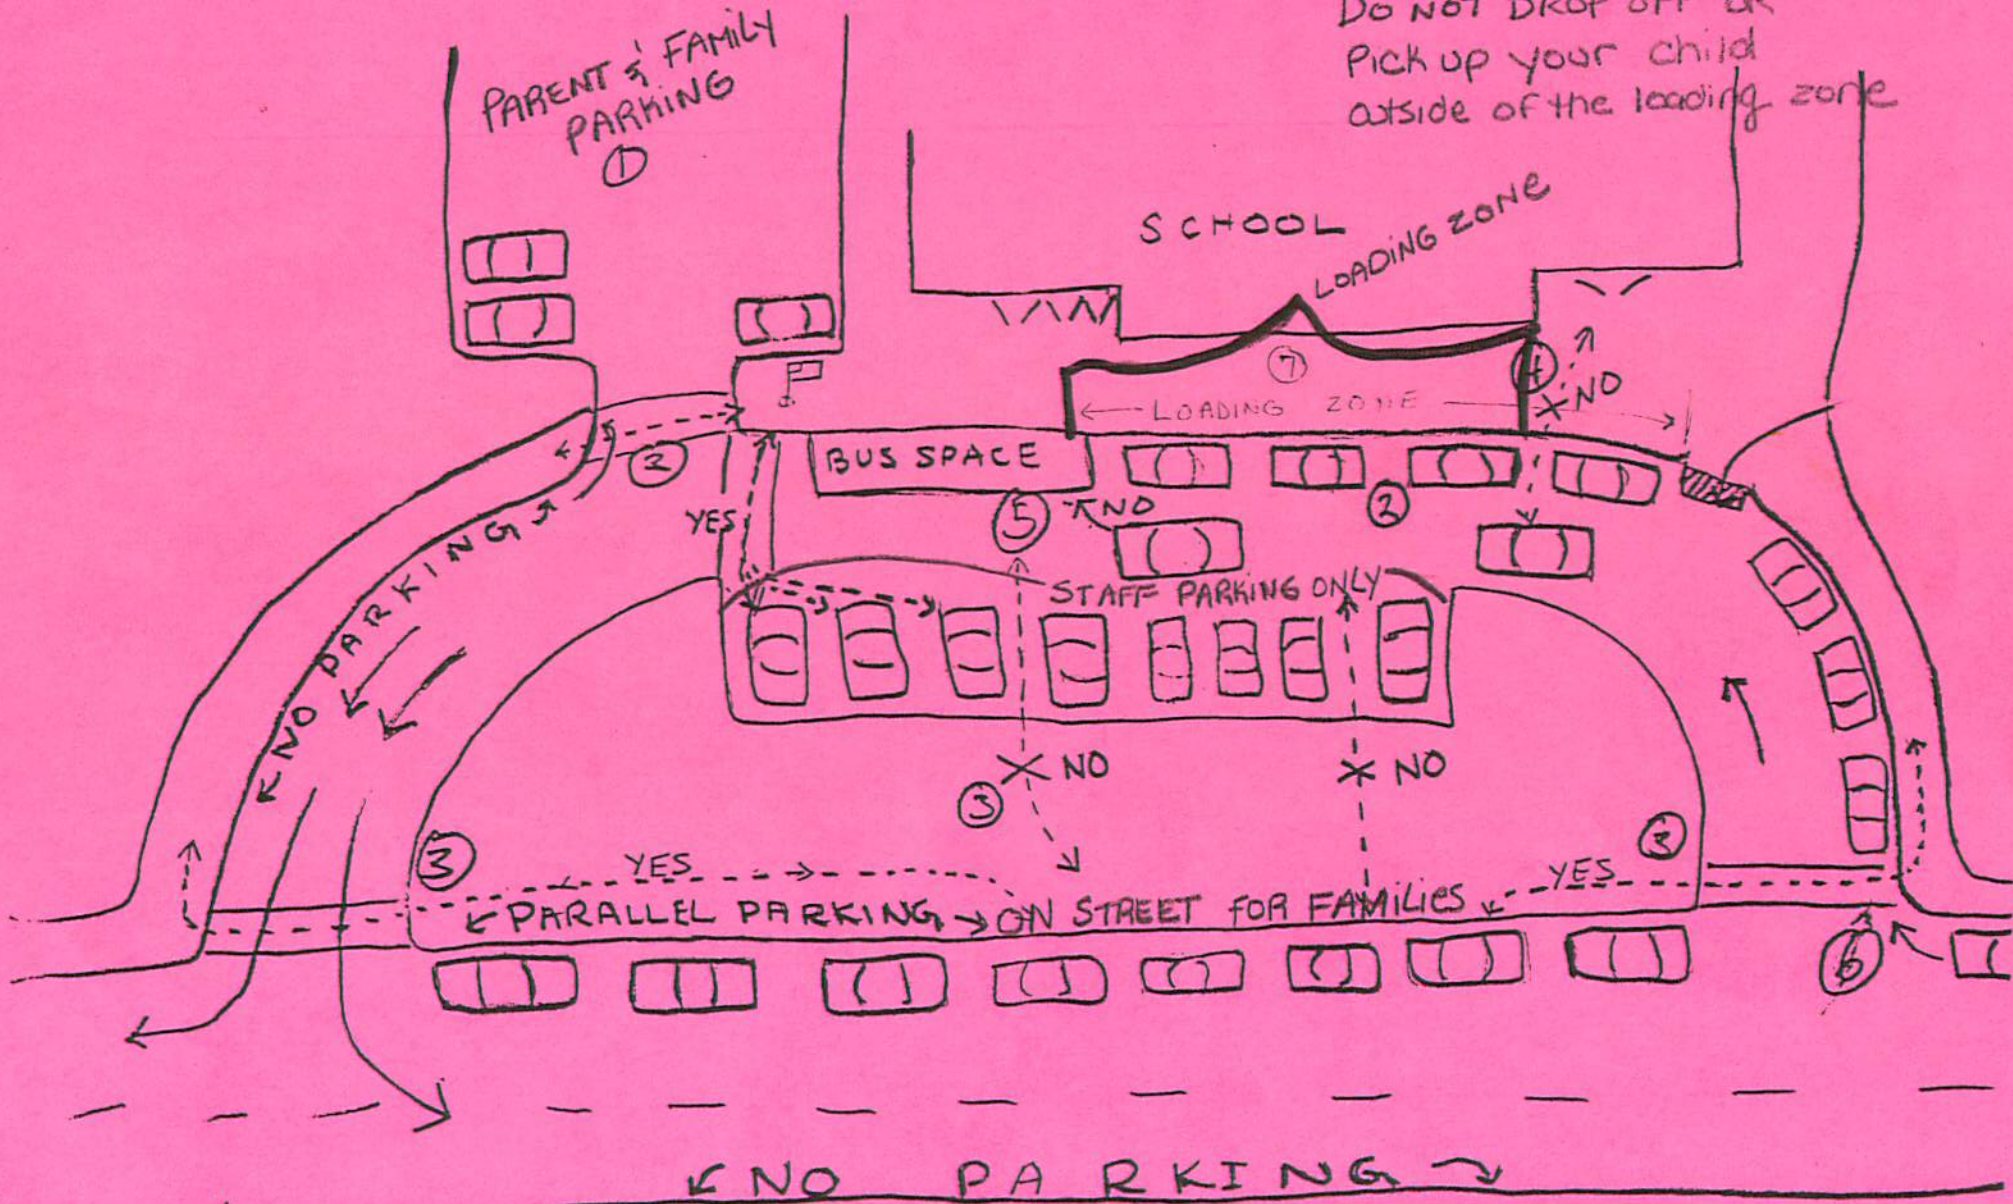 DO NOT DROP OFF OR
Pick up your child
outside of the loading zone
PARENT & FAMILY
PARKING
1
SCHOOL
LOADING ZONE
7
4
NO
LOADING ZONE
2
BUS SPACE
YES
5
NO
2
NO PARKING
STAFF PARKING ONLY
NO
3
NO
3
YES
3
YES
PARALLEL PARKING ON STREET FOR FAMILIES
6
NO PARKING